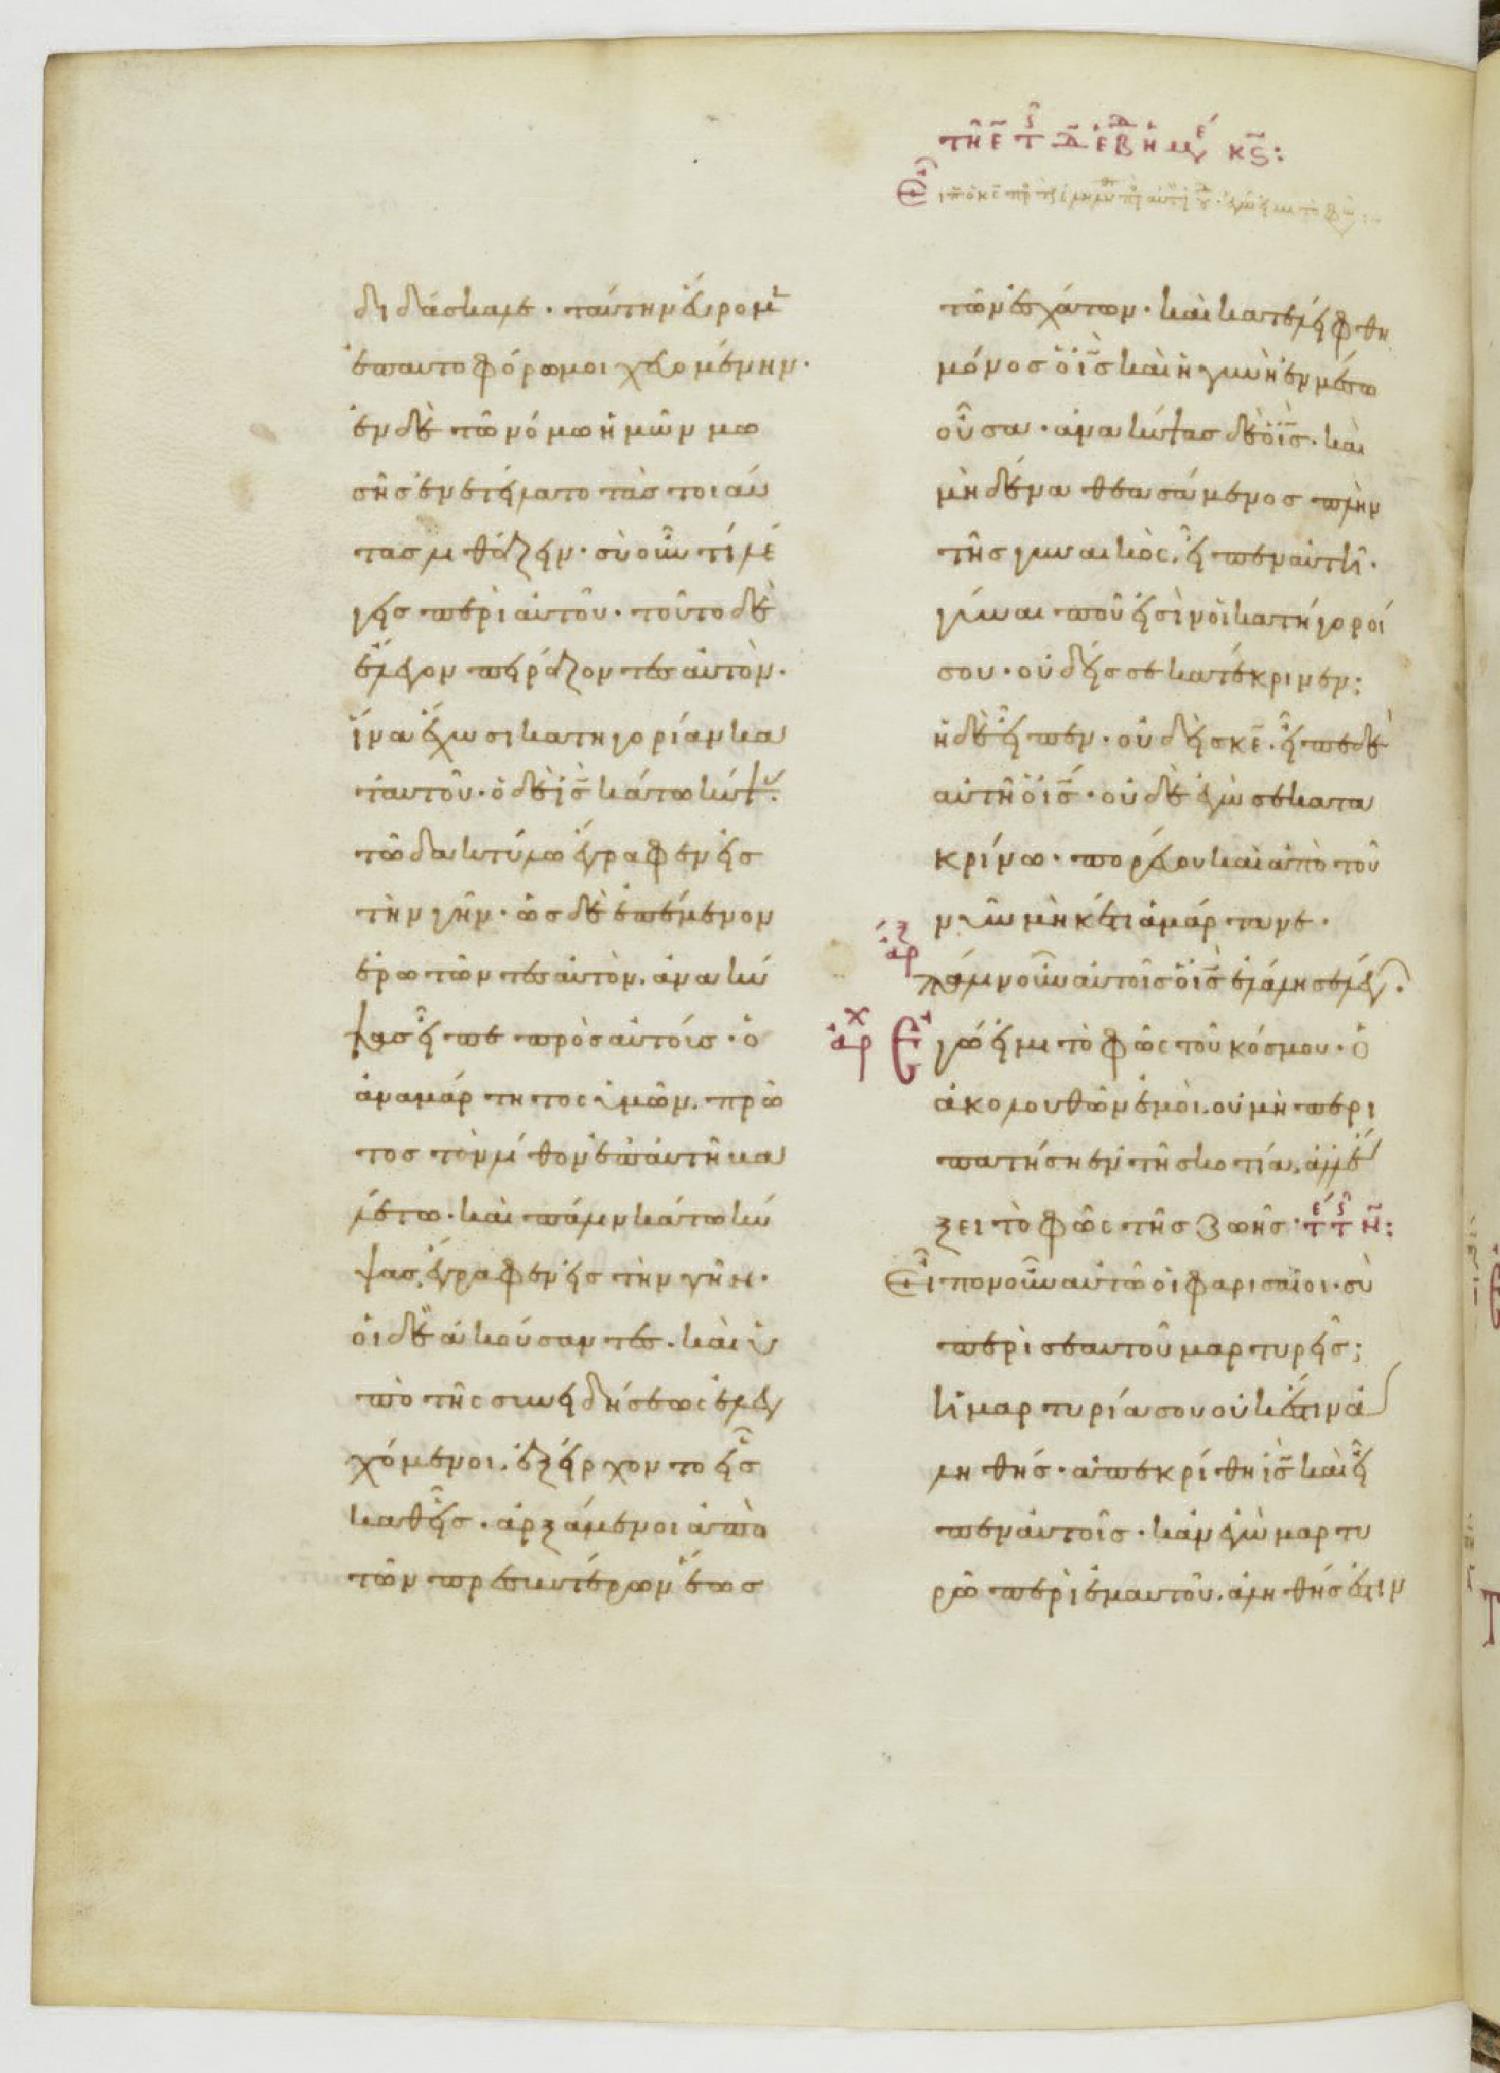 τῆ ε τ δ εβ
διδάσκαλε· ταύτην εὕρομ
ἐπαυτοφόρωμοιχευομένην·
ἐν δὲ τῶ νόμω ἡμῶν μω
σῆς ἐνετείλατο τὰς τοιαύ
τας λιθάζειν· σὺ οὖν τί λέ
γεις περὶ αὐτοῦ· τοῦτο δὲ
ἔλεγον πειράζοντες αὐτὸν·
ἵνα ἔχωσι κατηγορίαν κα
τ αυτοῦ· ὁ δὲ ι̅ς̅ κάτω κύψ
τῶ δακτύλω ἔγραφεν εἰς
τὴν γῆν· ὡς δὲ ἐπέμενον
ἐρωτῶντες αὐτὸν. ἀνακύ
ψας εἶπε πρὸς αὐτούς· ὁ
ἀναμάρτητος ὑμῶν. πρῶ
τος τὸν λίθον ἐπ αὐτῆ βα
λέτω· καὶ πάλιν κάτω κύ
ψας ἔγραφεν εἰς τὴν γῆν·
οἱ δὲ ἀκούσαντες. καὶ ὑ
πὸ τῆς συνειδήσεως ἐλεγ
χόμενοι. ἐξήρχοντο εἷς
καθεῖς. ἀρξάμενοι ἀπὸ
τῶν πρεσβυτέρων ἕως
τῶν ἐσχάτων· καὶ κατελείφθη
μόνος ὁ ι̅ς̅ καὶ ἡ γυνὴ ἐν μέσω
οὖσα· ἀνακύψας δὲ ὁ ι̅ς̅. καὶ
μηδένα θεασάμενος πλὴν
τῆς γυναικὸς. εἶπεν αὐτῆ·
γύναι ποῦ εἰσὶν οἱ κατήγοροί
σου· οὐδείς σε κατέκρινεν;
ἡ δὲ εἶπεν· οὐδεὶς κ̅ε̅. εἶπε δὲ
αὐτῆ ὁ ι̅ς̅· οὐδὲ ἐγὼ σε κατα
κρίνω· πορεύου καὶ ἀπὸ τοῦ
νῦν μηκέτι ἁμάρτανε·
πάλιν οὖν αὐτοῖς ὁ ι̅ς̅ ἐλάλησε λέγ·
ἀρ Ἐγώ εἰμι τὸ φῶς τοῦ κόσμου· ὁ
ἀκολουθῶν ἐμοὶ. οὐ μὴ περι
πατήση ἐν τῆ σκοτία. ἀλλ ἕ
ξει τὸ φῶς τῆς ζωῆς·
Εἶπον οὖν αὐτῶ οἱ φαρισαῖοι· σὺ
περὶ σεαυτοῦ μαρτυρεῖς;
ἡ μαρτυρία σου οὐκ ἔστιν ἀ
ληθής· ἀπεκρίθη ι̅ς̅ καὶ εἶ
πεν αὐτοῖς· κἂν ἐγὼ μαρτυ
ρῶ περὶ ἐμαυτοῦ. ἀληθής ἐστιν